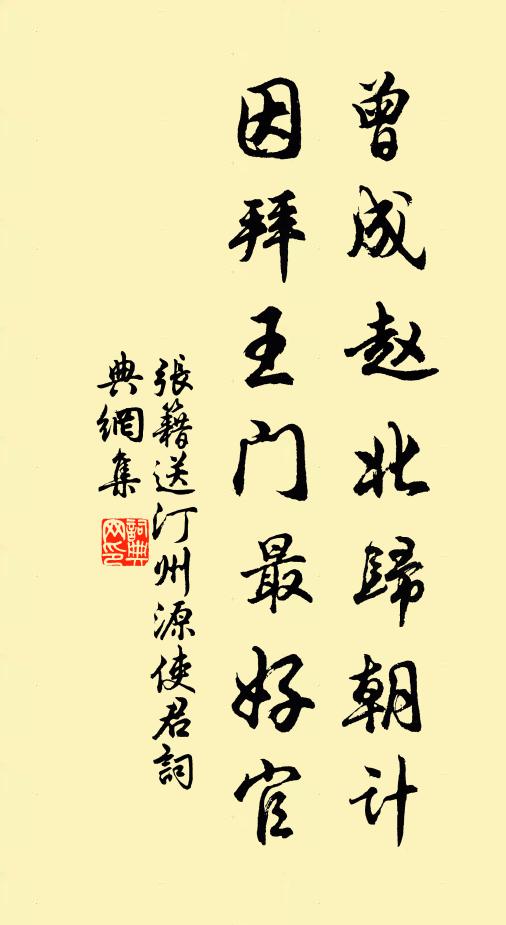 曾成赵北歸朝计
因拜王门最好官
張籍送汀州源使君詞
典網集
詞典
网印